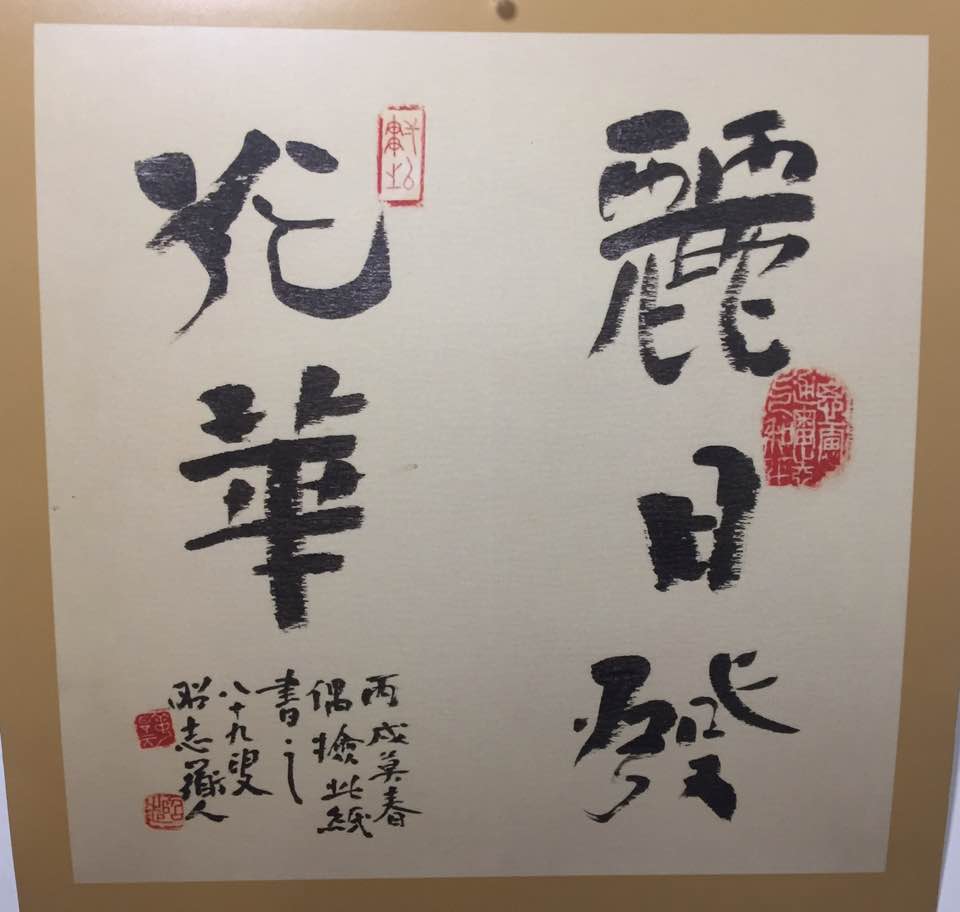 麗日發
光華
丙戌莫春
偶撿此紙
書之
八十九叟
志 人